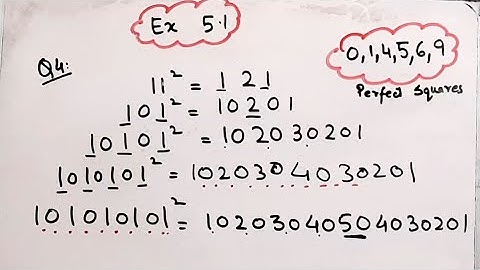 Ex 5.1
0,1,4,5,6,9
Perfect Squares
Q4:
11² = 121
101² = 10201
10101² = 102030201
1010101² = 1020304030201
101010101² = 10203040504030201